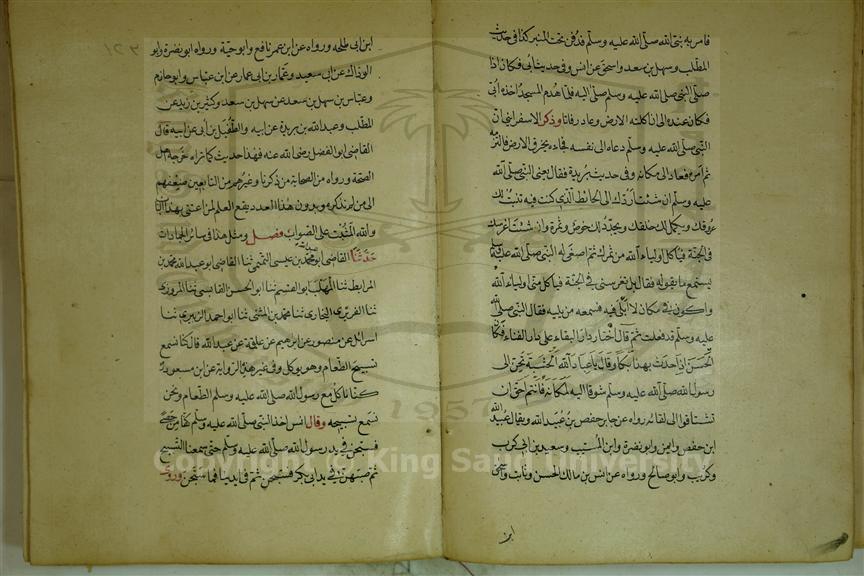 فامر به نبى الله صلى الله عليه وسلم فدفن تحت المنبر كذا فى حديث
المطلب وسهل بن سعد واسحق عن انس وفى حديث ابى فكان اذا
صلى النبى صلى الله عليه وسلم صلى اليه فلما هدم المسجد اخذه ابى
فكان عنده الى ان اكلته الارض وعاد رفاتا وذكر الاسفراينى ان
النبى صلى الله عليه وسلم دعاه الى نفسه فجاء يخرق الارض فالتزمه
ثم امره فعاد الى مكانه وفى حديث بريدة فقال يعنى النبى صلى الله
عليه وسلم ان شئت اردك الى الحائط الذى كنت فيه تنبت لك
عروقك ويكمل لك خلقك ويجدد لك خوص وثمرة وان شئت اغرسك
فى الجنة فياكل اولياء الله من ثمرك ثم اصغى له النبى صلى الله عليه وسلم
يستمع ما يقول فقال بل تغرسنى فى الجنة فياكل منى اولياء الله
واكون فى مكان لا ابلى فيه فسمعه من يليه فقال النبى صلى الله
عليه وسلم قد فعلت ثم قال اختار دار البقاء على دار الفناء فكان
الحسن اذا حدث بهذا بكا وقال يا عباد الله الخشبة تحن الى
رسول الله صلى الله عليه وسلم شوقا اليه لمكانه فانتم احق ان
تشتاقوا الى لقائه رواه عن جابر حفص بن عبيد الله ويقال عبد الله
ابن حفص وايمن وابو نضرة وابن المسيب وسعيد بن ابى كرب
وكريب وابو صالح ورواه عن انس بن مالك الحسن وثابت واسحق
ابن
ابن ابى طلحه ورواه عن ابن عمر نافع وابو حية ورواه ابو نضرة وابو
الوداك عن ابى سعيد وعمار بن ابى عمار عن ابن عباس وابو حازم
وعباس بن سهل بن سعد عن سهل بن سعد وكثير بن زيد عن
المطلب وعبد الله بن بريدة عن ابيه والطفيل بن ابى عن ابيه قال
القاضى ابو الفضل رضى الله عنه فهذا حديث كما تراه خرجه اهل
الصحة ورواه من الصحابة من ذكرنا وغيرهم من التابعين ضعفهم
الى من لم نذكره وبدون هذا العدد يقع العلم لمن اعتنى بهذا الباب
والله المثبت على الصواب فصل ومثل هذا فى سائر الجمادات
حدثنا القاضى ابو عبد الله محمد بن عيسى التميمى ثنا القاضى ابو عبد الله محمد بن
المرابط ثنا المهلب ابو القسم ثنا ابو الحسن القابسى ثنا المروزى
ثنا الفربرى البخارى ثنا محمد بن المثنى ثنا ابو احمد الزبيرى ثنا
اسرائيل عن منصور عن ابرهيم عن علقمة عن عبد الله قال كنا نسمع
تسبيح الطعام وهو يوكل وفى غير هذه الرواية عن ابن مسعود
كنا ناكل مع رسول الله صلى الله عليه وسلم الطعام ونحن
نسمع تسبيحه وقال انس اخذ النبى صلى الله عليه وسلم كفا من حصى
فسبحن فى يد رسول الله صلى الله عليه وسلم حتى سمعنا التسبيح
ثم صبهن فى يد ابى بكر فسبحن ثم فى ايدينا فما سبحن وروى
1957
Copyright © King Saud University